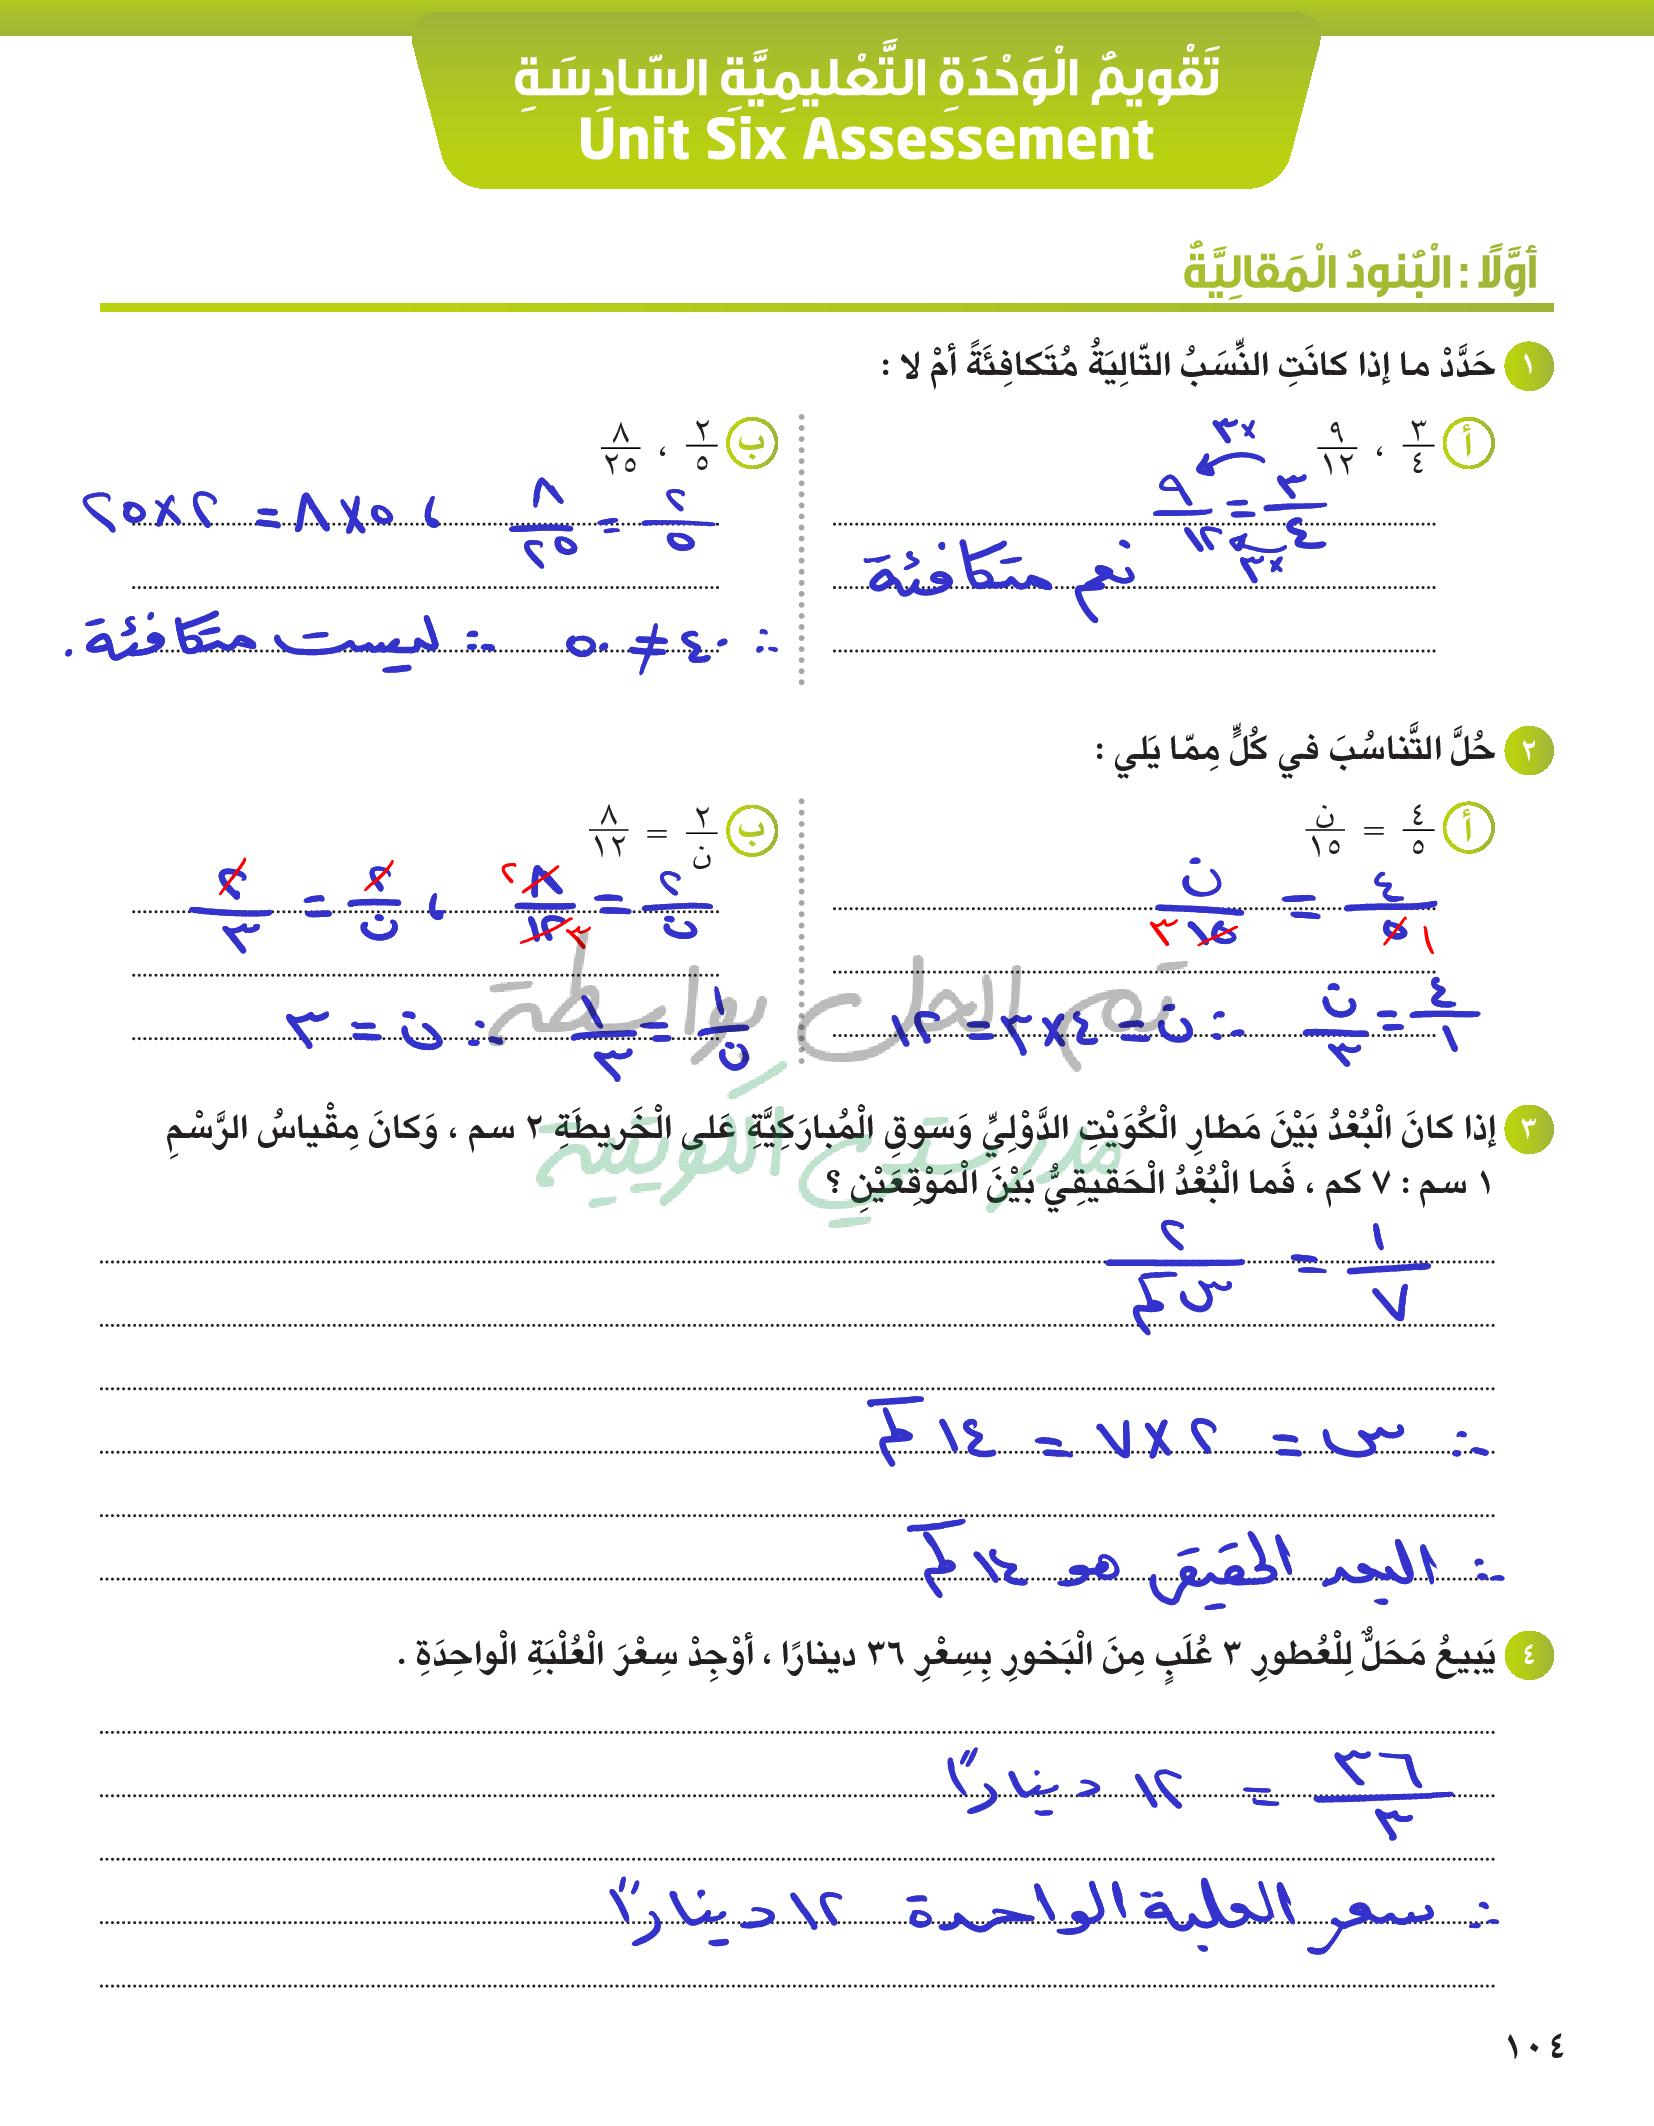 تَقْويمُ الْوَحْدَةِ التَّعْليمِيَّةِ السّادسَةِ
Unit Six Assessement
أوَّلًا : الْبُنودُ الْمَقالِيَّةُ
١ حَدَّدْ ما إذا كانَتِ النِّسَبُ التّالِيَةُ مُتَكافِئَةً أمْ لا :
أ ٣/٤ ، ٩/١٢
×٣
٣/٤ = ٩/١٢
×٣
نعم متكافئة
ب ٢/٥ ، ٨/٢٥
٢/٥ = ٨/٢٥ ، ٥×٨ = ٢×٢٥
∴ ٤٠ ≠ ٥٠ ∴ ليست متكافئة .
٢ حُلَّ التَّناسُبَ في كُلٍّ مِمّا يَلي :
أ ٤/٥ = ن/١٥
٤/٥ = ن/١٥ ١ ٣
٤/١ = ن/٣ ∴ ن = ٤×٣ = ١٢
ب ٢/ن = ٨/١٢
٢/ن = ٨/١٢ ٢ ٣ ، ٢/ن = ٢/٣
١/ن = ١/٣ ∴ ن = ٣
تم الحل بواسطة
مدرستي الكويتية
٣ إذا كانَ الْبُعْدُ بَيْنَ مَطارِ الْكُوَيْتِ الدَّوْلِيِّ وَسوقِ الْمُبارَكِيَّةِ عَلى الْخَريطَةِ ٢ سم ، وَكانَ مِقْياسُ الرَّسْمِ
١ سم : ٧ كم ، فَما الْبُعْدُ الْحَقيقِيُّ بَيْنَ الْمَوْقِعَيْنِ ؟
١/٧ = ٢/س كم
∴ س = ٢×٧ = ١٤ كم
∴ البعد الحقيقي هو ١٤ كم
٤ يَبيعُ مَحَلٌّ لِلْعُطورِ ٣ عُلَبٍ مِنَ الْبَخورِ بِسِعْرِ ٣٦ دينارًا ، أوْجِدْ سِعْرَ الْعُلْبَةِ الْواحِدَةِ .
٣٦/٣ = ١٢ دينارًا
∴ سعر العلبة الواحدة ١٢ دينارًا
١٠٤